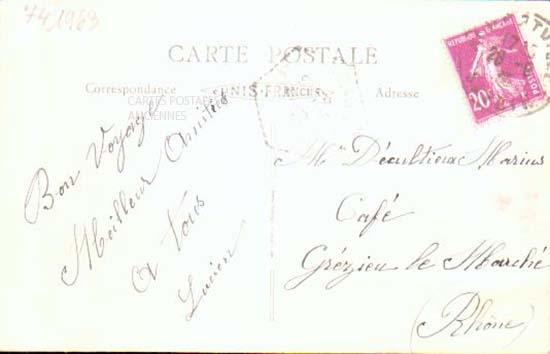 74/1963
CARTE POSTALE
Correspondance
UNIS-FRANCE
Adresse
CARTES POSTALES
ANCIENNES
REPUBLIQUE FRANÇAISE
20c
POSTES
Bon Voyage
Meilleur Amitiés
a tous
Lucien
Mr Décultieux Marius
Café
Grézieu le Marché
(Rhône)